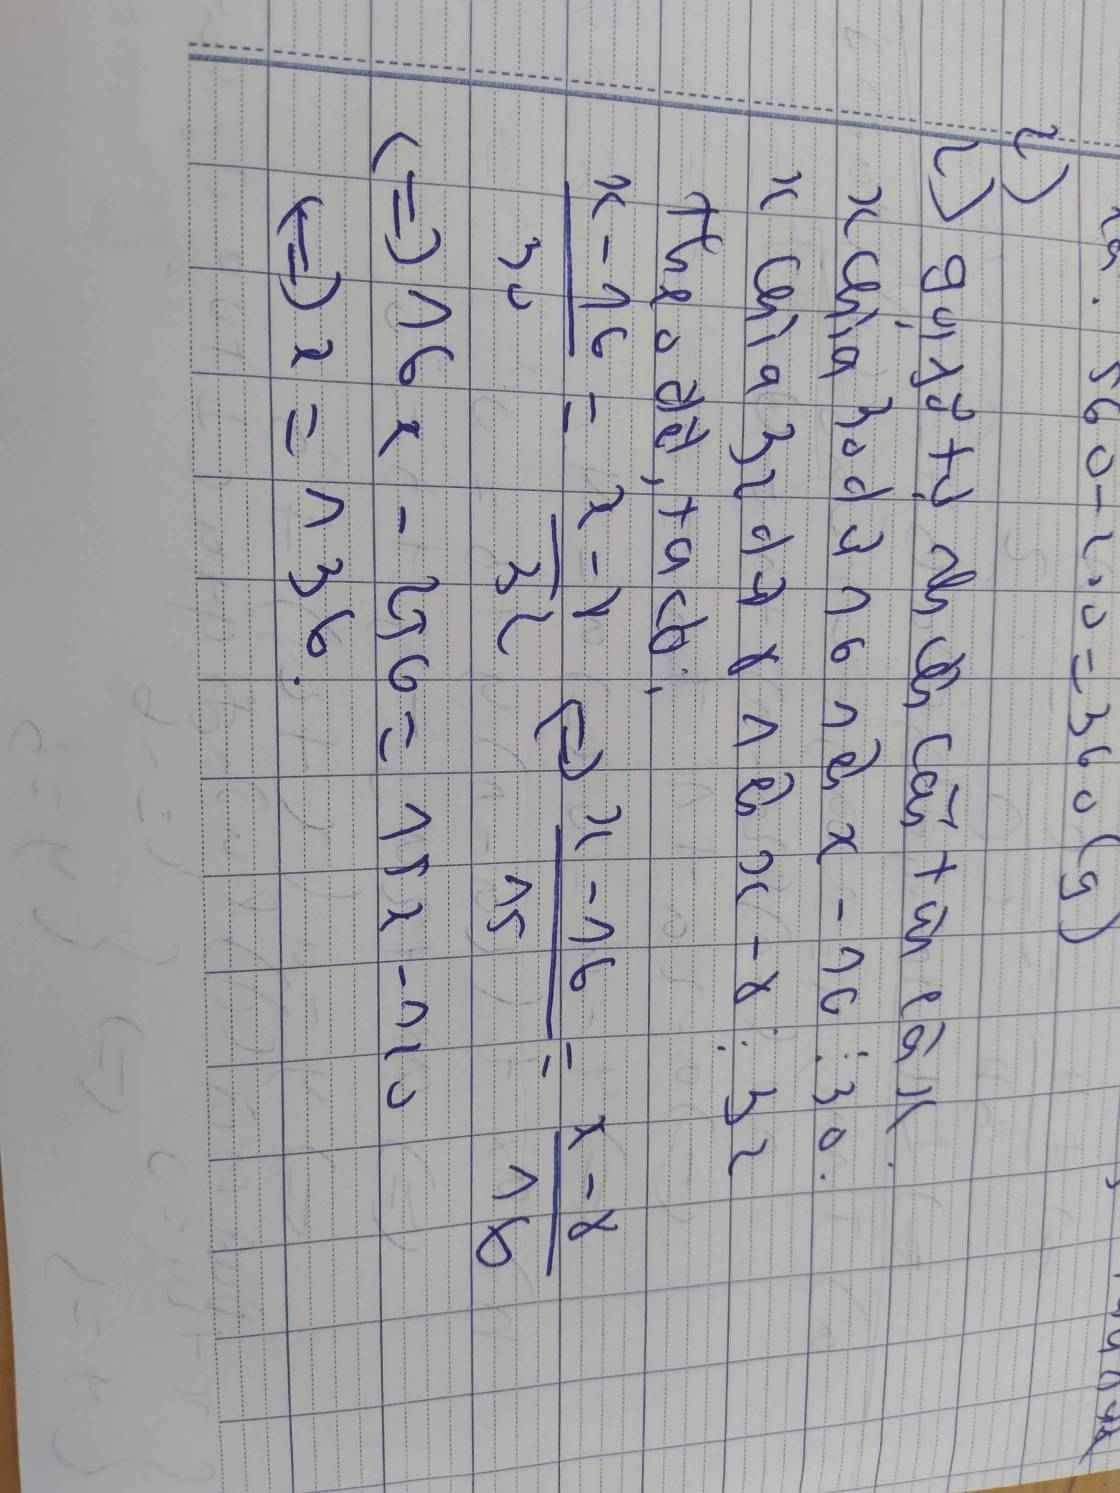 560-200=360(g)
2)
2) gọi x là tự nhiên cần tìm là x.
x chia 30 dư 16 nên x - 16 ⋮ 30.
x chia 32 dư 8 nên x - 8 ⋮ 32
Theo đề, ta có:
x-16/30 = x-8/32 (=) x-16/15 = x-8/16
(=) 16x - 256 = 15x - 120
(=) x = 136.